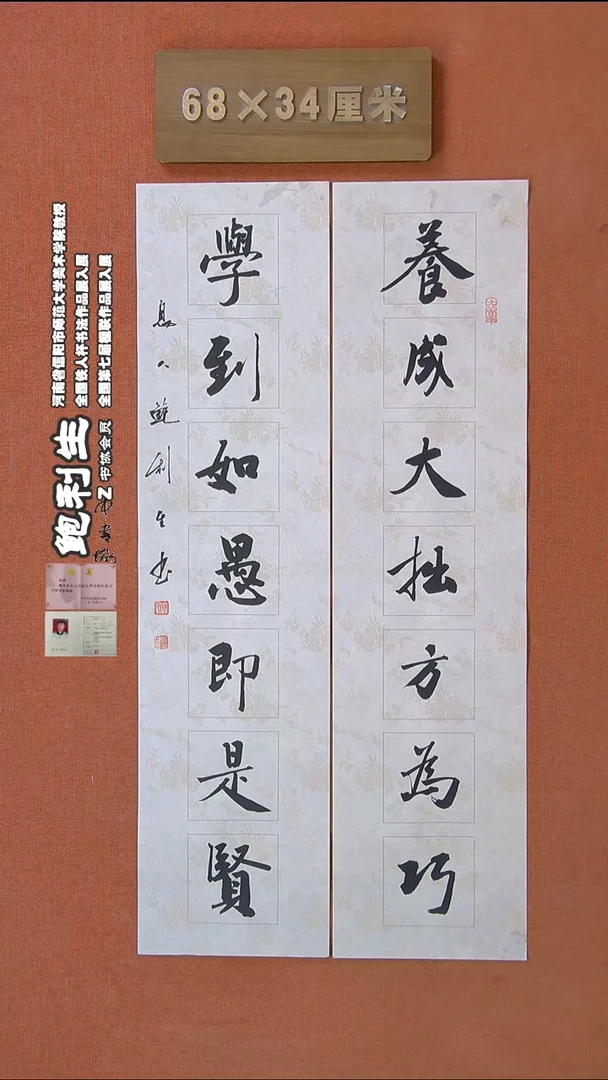 68×34厘米
養成大拙方為巧
學到如愚即是賢
息人鲍利生书
鲍利生
书协会员
河南省信阳市师范大学美术学院教授
全国铁人杯书法作品展入展
全国第七届楹联作品展入展